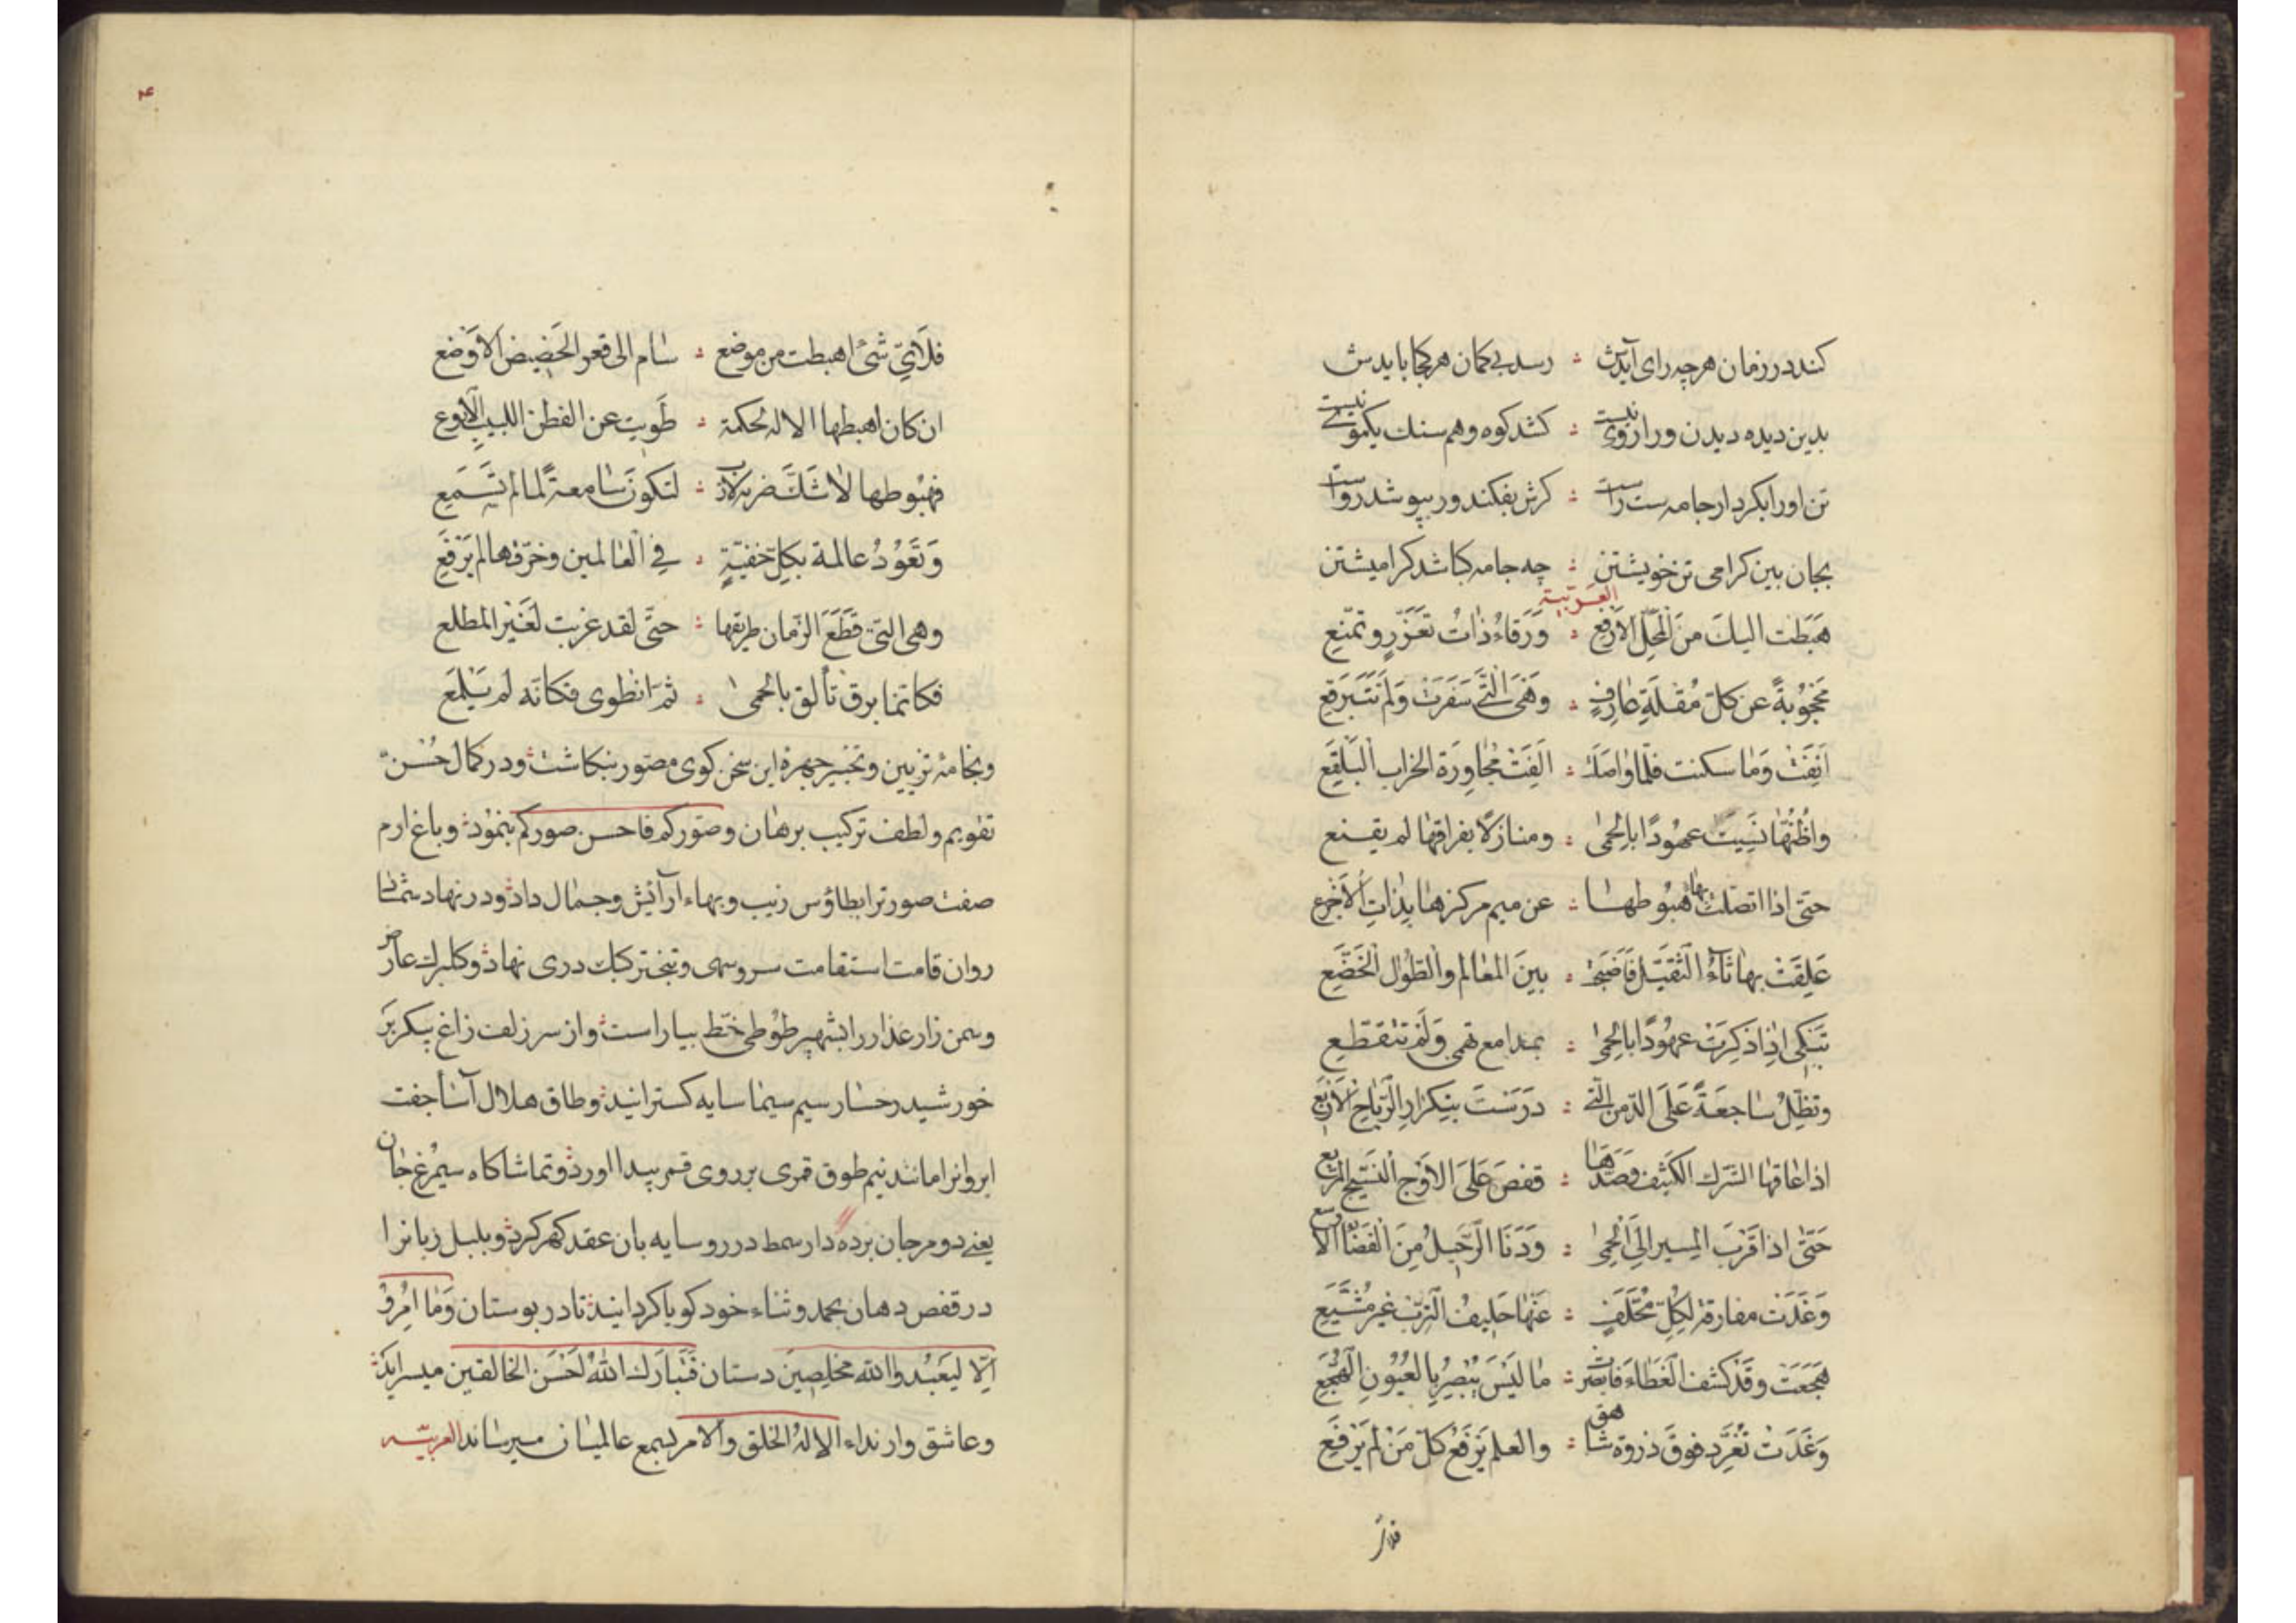 کند در زمان هرچه رای آیدش ؞ رسد بی کمان هر کجا بایدش
بدین دیده دیدن ورا روی نیست ؞ کشد کوه و هم سنك یکموی نیست
تن اورا بکردار جامه ست راست ؞ کرش بفکند ور بپوشد رواست
بجان بین کرامی تن خویشتن ؞ چه جامه کباشد کرامیش تن
العربیة
هَبَطَت الیكَ منَ المحَلّ الاَرفع ؞ وَرَقاءُ ذاتُ تعَزّزٍ وتمنّعِ
مَحْجُوبَةً عن کلّ مُقلَةِ عارفٍ ؞ وَهَیَ الّتی سَفَرَتْ وَلَم تَتَبَرقعِ
اَنِفَتْ وَمٰا سکنت فلمّا واصَلَت ؞ اَلِفَتْ مُجٰاوِرَة الخراب البَلقَعِ
واظُنّهٰا نَسِیَت عهُودًا بالحِمیٰ ؞ ومنازلًا بفراقهٰا لم یقنع
حتی اذا اتصلت بهاء هبُوطهٰا ؞ عن میم مرکزهٰا بِذاتِ الاَجْرعِ
عَلِقَتْ بهٰا ثٰاءُ الثّقیل فَاَصبَحت ؞ بینَ المعٰالم والطّلُول الخُضّعِ
تَبکی اِذا ذَکِرَتْ عهُودًا بالحِمیٰ ؞ بمدامع تهمی وَلَم تتقطعِ
وتظِلّ سٰاجعَةً عَلَی الدّمن الّتی ؞ دَرَسَتْ بِتکرٰارِ الرّیاحِ الاَربَعِ
اذ اعٰاقهٰا الشّرَك الکثیف وَصَدّهٰا ؞ قفصَ عَلَی الاوج الفسیح المرَبّع
حَتّی اذا قَرُبَ المسیر اِلَی الحِمیٰ ؞ وَدَنَا الرّحیلُ مِنَ الفَضٰاء الاَوسَع
وَغَدَت مفارقة لِکُلّ مخَلّفٍ ؞ عَنهٰا حَلیفُ التّربِ غیر مُشَیّعِ
هَجَعَت وقَد کُشف الغَطاء فاَبصَرت ؞ مٰا لَیسَ یُبْصَرُ بِالعُیُونِ الهُجّعِ
وَغَدَت تُغَرّد فوقَ ذروة شاهق ؞ والعلم یَرفَعُ کلّ مَن لم یَرْفَعِ
فلای
۴
فلَاَیّ شیءٍ اهبطت من موضع ؞ سٰام الی قعر الحَضیض الاَوضع
ان کان اهبطها الاله لحکمة ؞ طَویت عن الفطن اللبیبِ الاَروع
فهبُوطها لا شَكّ ضربة لازب ؞ لتکونَ سٰامعةً لما لم تَسمَعِ
وَتَعُودُ عالمة بکلّ خفیّةٍ ؞ فی العٰالمین وخرقها لم یَرْقَعِ
وهی التی قَطَعَ الزّمان طریقها ؞ حتّی لقد غربت لغَیر المطلع
فکانّما برق تألق بالحمیٰ ؞ ثمّ انطوی فکانّه لم یَلْمَع
وبخامهٔ تزیین و تحبیر چهرهٔ این سخن کوی مصوّر بنکاشت و در کمال حُسْن
تقویم و لطف ترکیب برهٰان وصوّرکم فاحسن صورکم بنمود و باغ ارم
صفت صورترا بطاؤس زیب و بهاء آرایش و جمٰال داد و در نهاد شمٰٰا
روان قامت استقامت سرو سهی و تبختر کبك دری نهاد و کلبرك عارض
و سمن زار عذار را بشهپر طوطی خط بیاراست و از سر زلف زاغ پیکر بر
خورشید رخسار سیم سیما سایه کسترانید و طاق هلال آسا جفت
ابروانرا مانند نیم طوق قمری بر روی قمر پیدا اورد و تماشاکاه سیمرغ جان
یعنی دو مرجان برده دار سمط در رو سایه بان عقد کهر کرد و بلبل زبانرا
در قفص دهان بحمد و ثناء خود کویا کردانید تا در بوستان وَمٰا اُمِرُوا
اِلّا لیَعبُدوا الله مخلِصِینَ دستان فَتَبارَك اللهُ اَحسَن الخالقین میسراید
و عاشق وار نداء الا لهُ الخلق والامر بسمع عالمیٰان میرسٰاند العربیّه